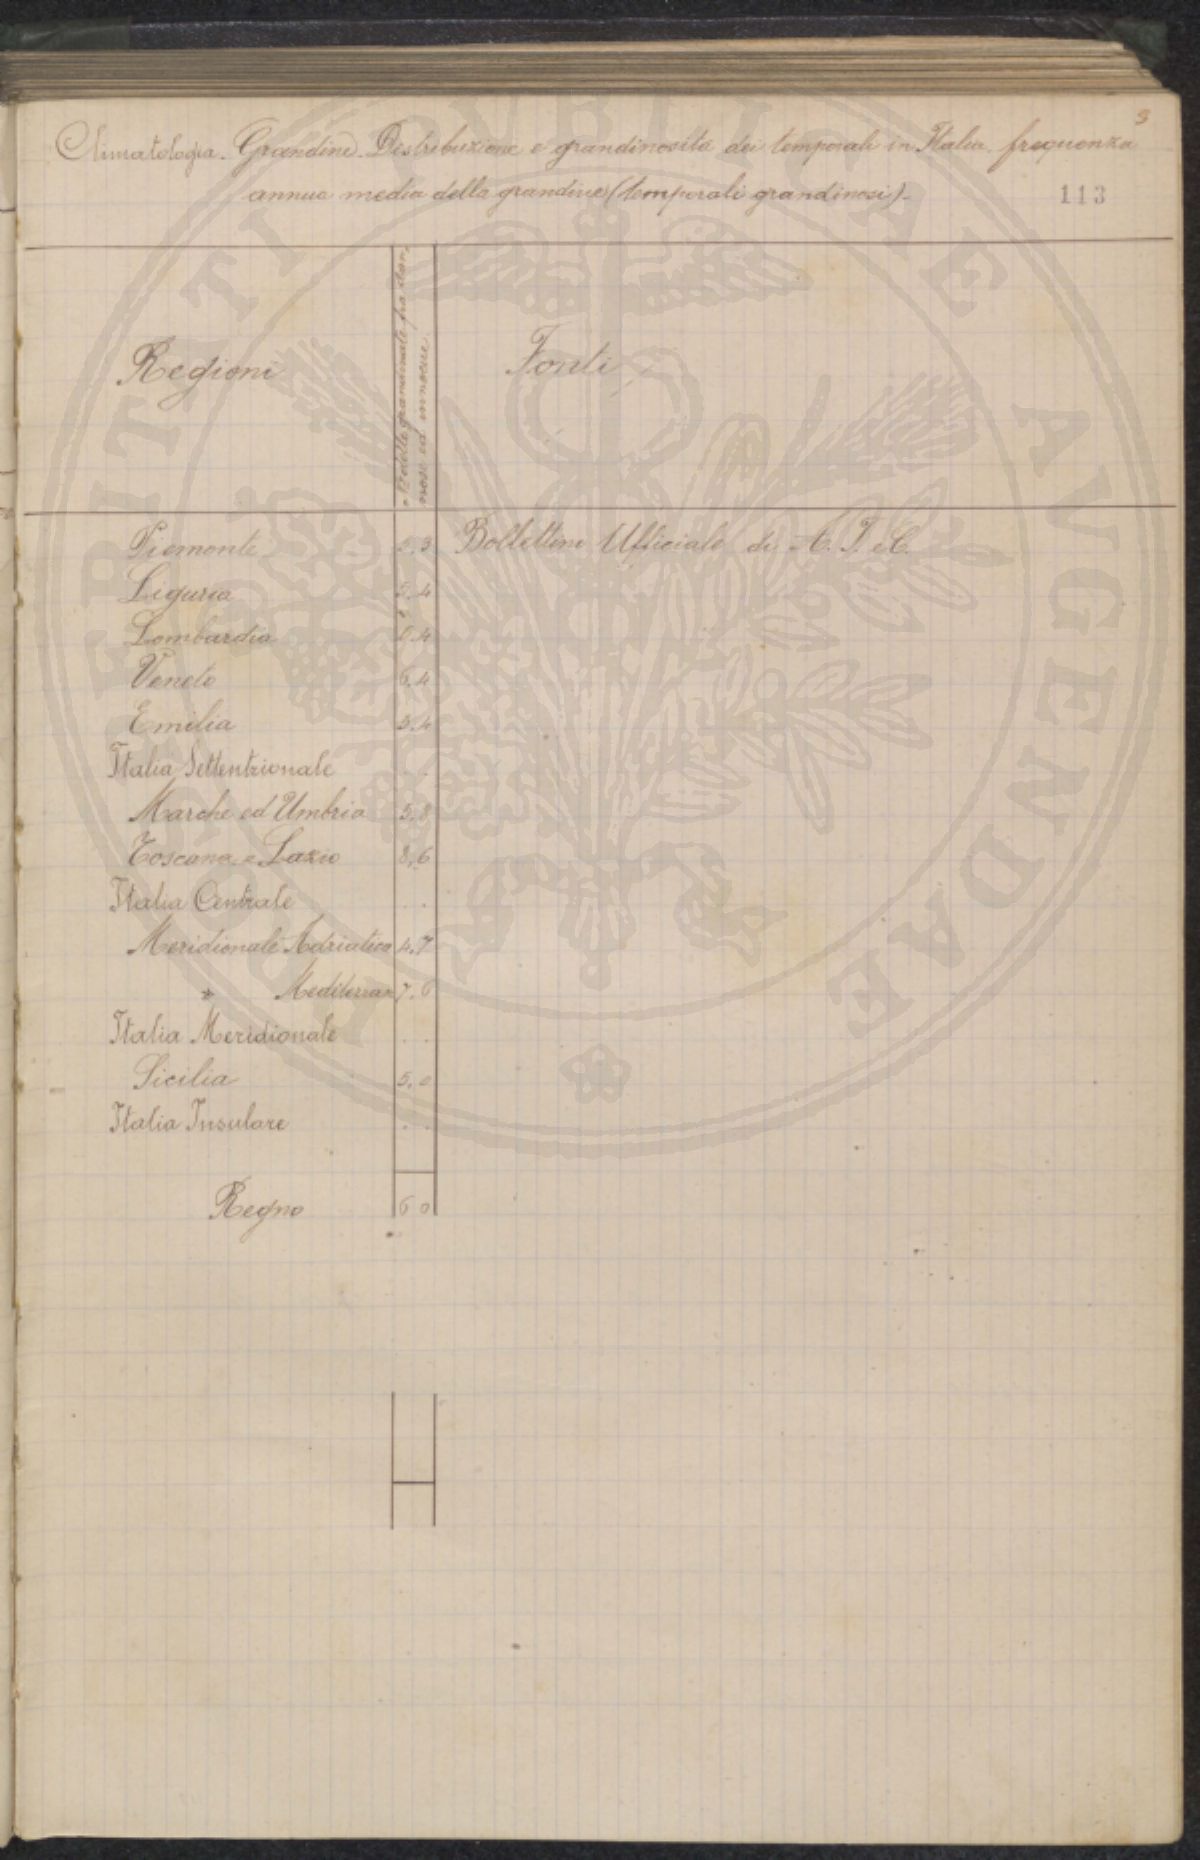 3
Climatologia. Grandine. Distribuzione e grandinosità dei temporali in Italia. frequenza
annua media della grandine (temporali grandinosi).
113
Regioni
N° delle grandinate fra dan-
nose ed innocue
Fonti
Piemonte 5.3 Bollettini Ufficiale di A. I. e C.
Liguria 5.4
Lombardia 6.4
Veneto 6.4
Emilia 5.4
Italia Settentrionale . .
Marche ed Umbria 5.8
Toscana e Lazio 8.6
Italia Centrale . .
Meridionale Adriatica 4.7
" Mediterran 7.6
Italia Meridionale . .
Sicilia 5.0
Italia Insulare . .
Regno 6 0
PVBLICAE AVGENDAE